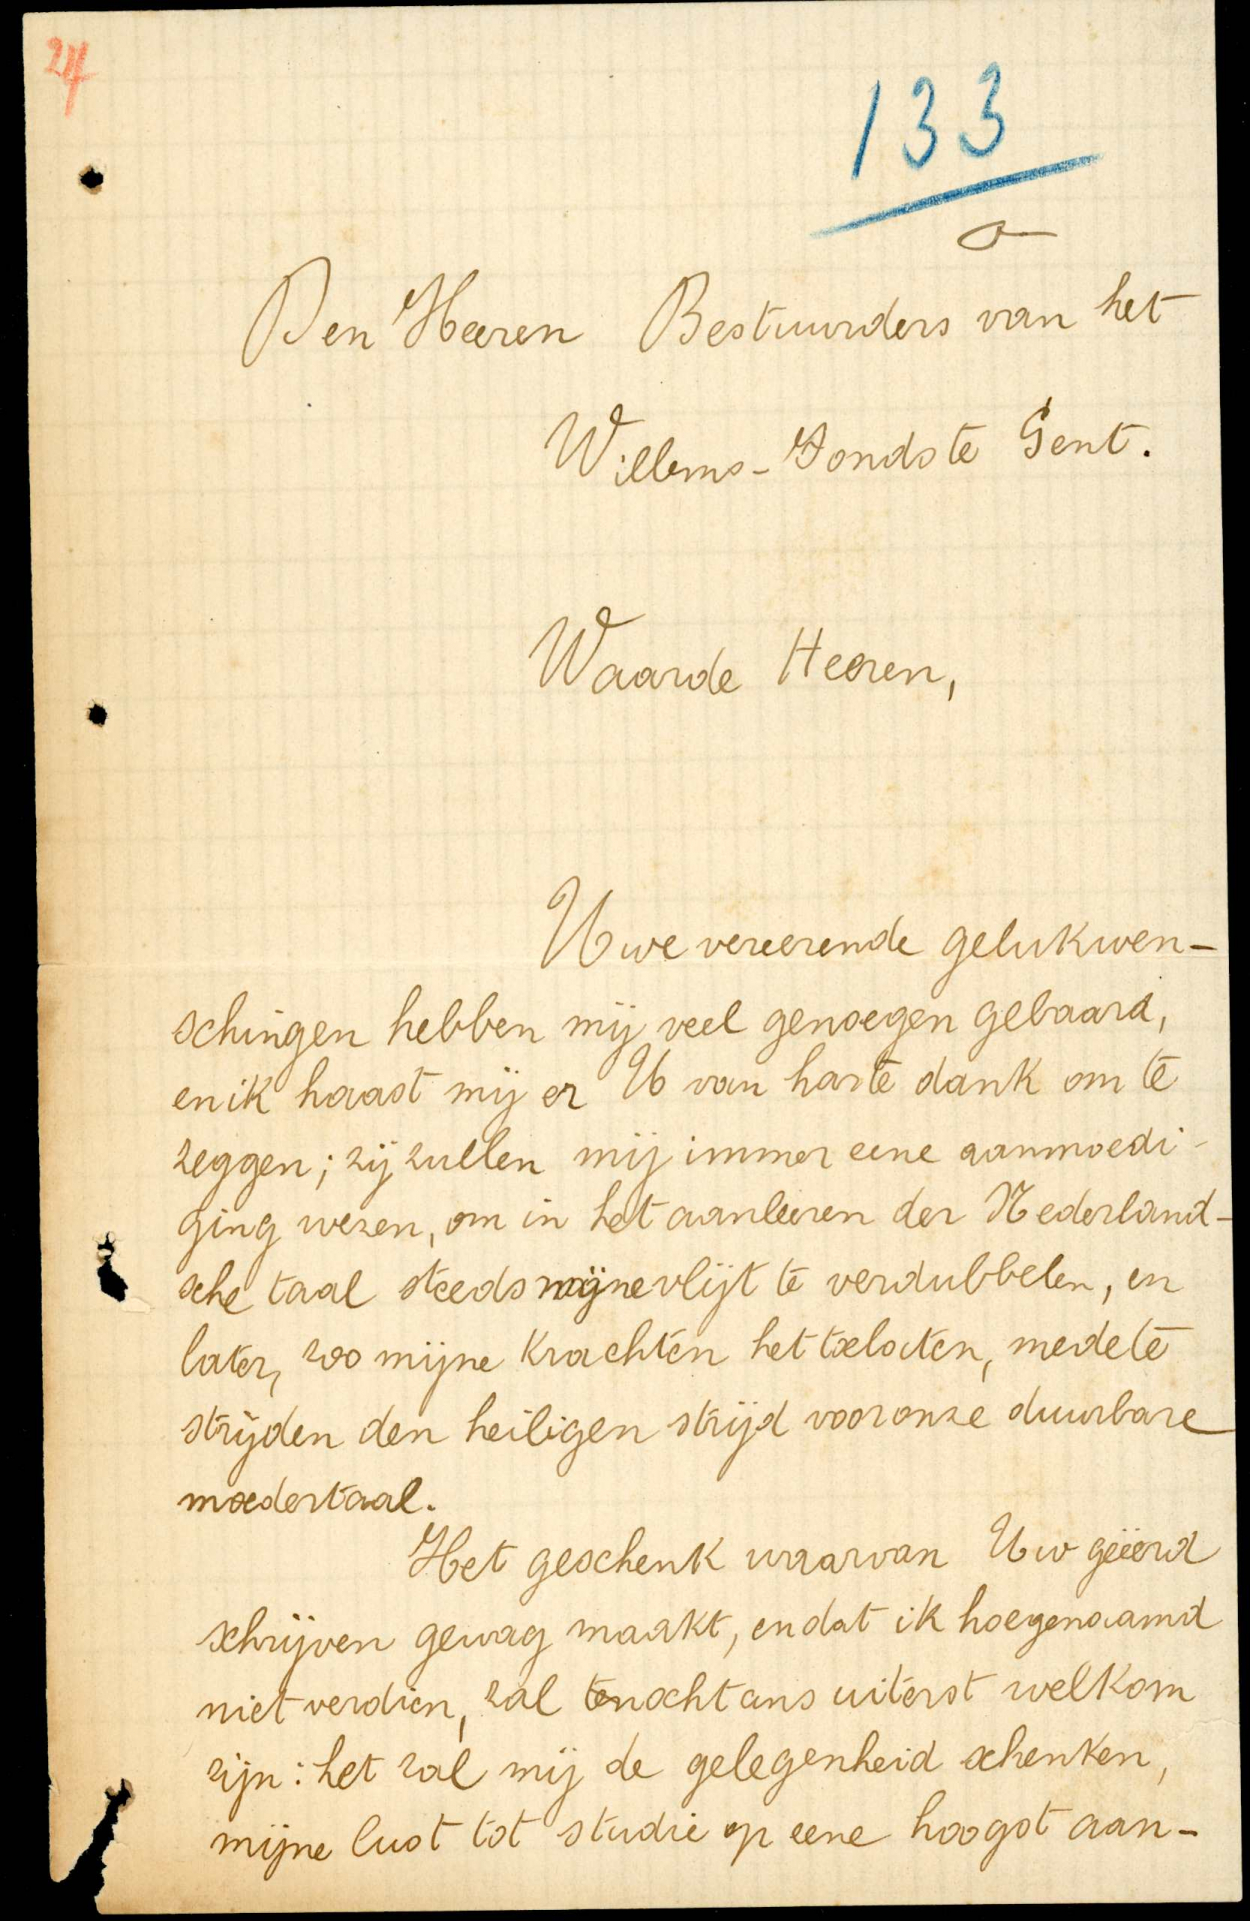 24
133
Den Heeren Bestuurders van het
Willems-Fonds te Gent.
Waarde Heeren,
Uwe vereerende gelukwen-
schingen hebben mij veel genoegen gebaard,
en ik haast mij er U van harte dank om te
zeggen; zij zullen mij immer eene aanmoedi-
ging wezen, om in het aanleeren der Nederland-
sche taal steeds mijne vlijt te verdubbelen, en
later, zoo mijne krachten het toelaten, mede te
strijden den heiligen strijd voor onze duurbare
moedertaal.
Het geschenk waarvan Uw geëerd
schrijven gewag maakt, en dat ik hoegenaamd
niet verdien, zal nochtans uiterst welkom
zijn: het zal mij de gelegenheid schenken,
mijne lust tot studie op eene hoogst aan-